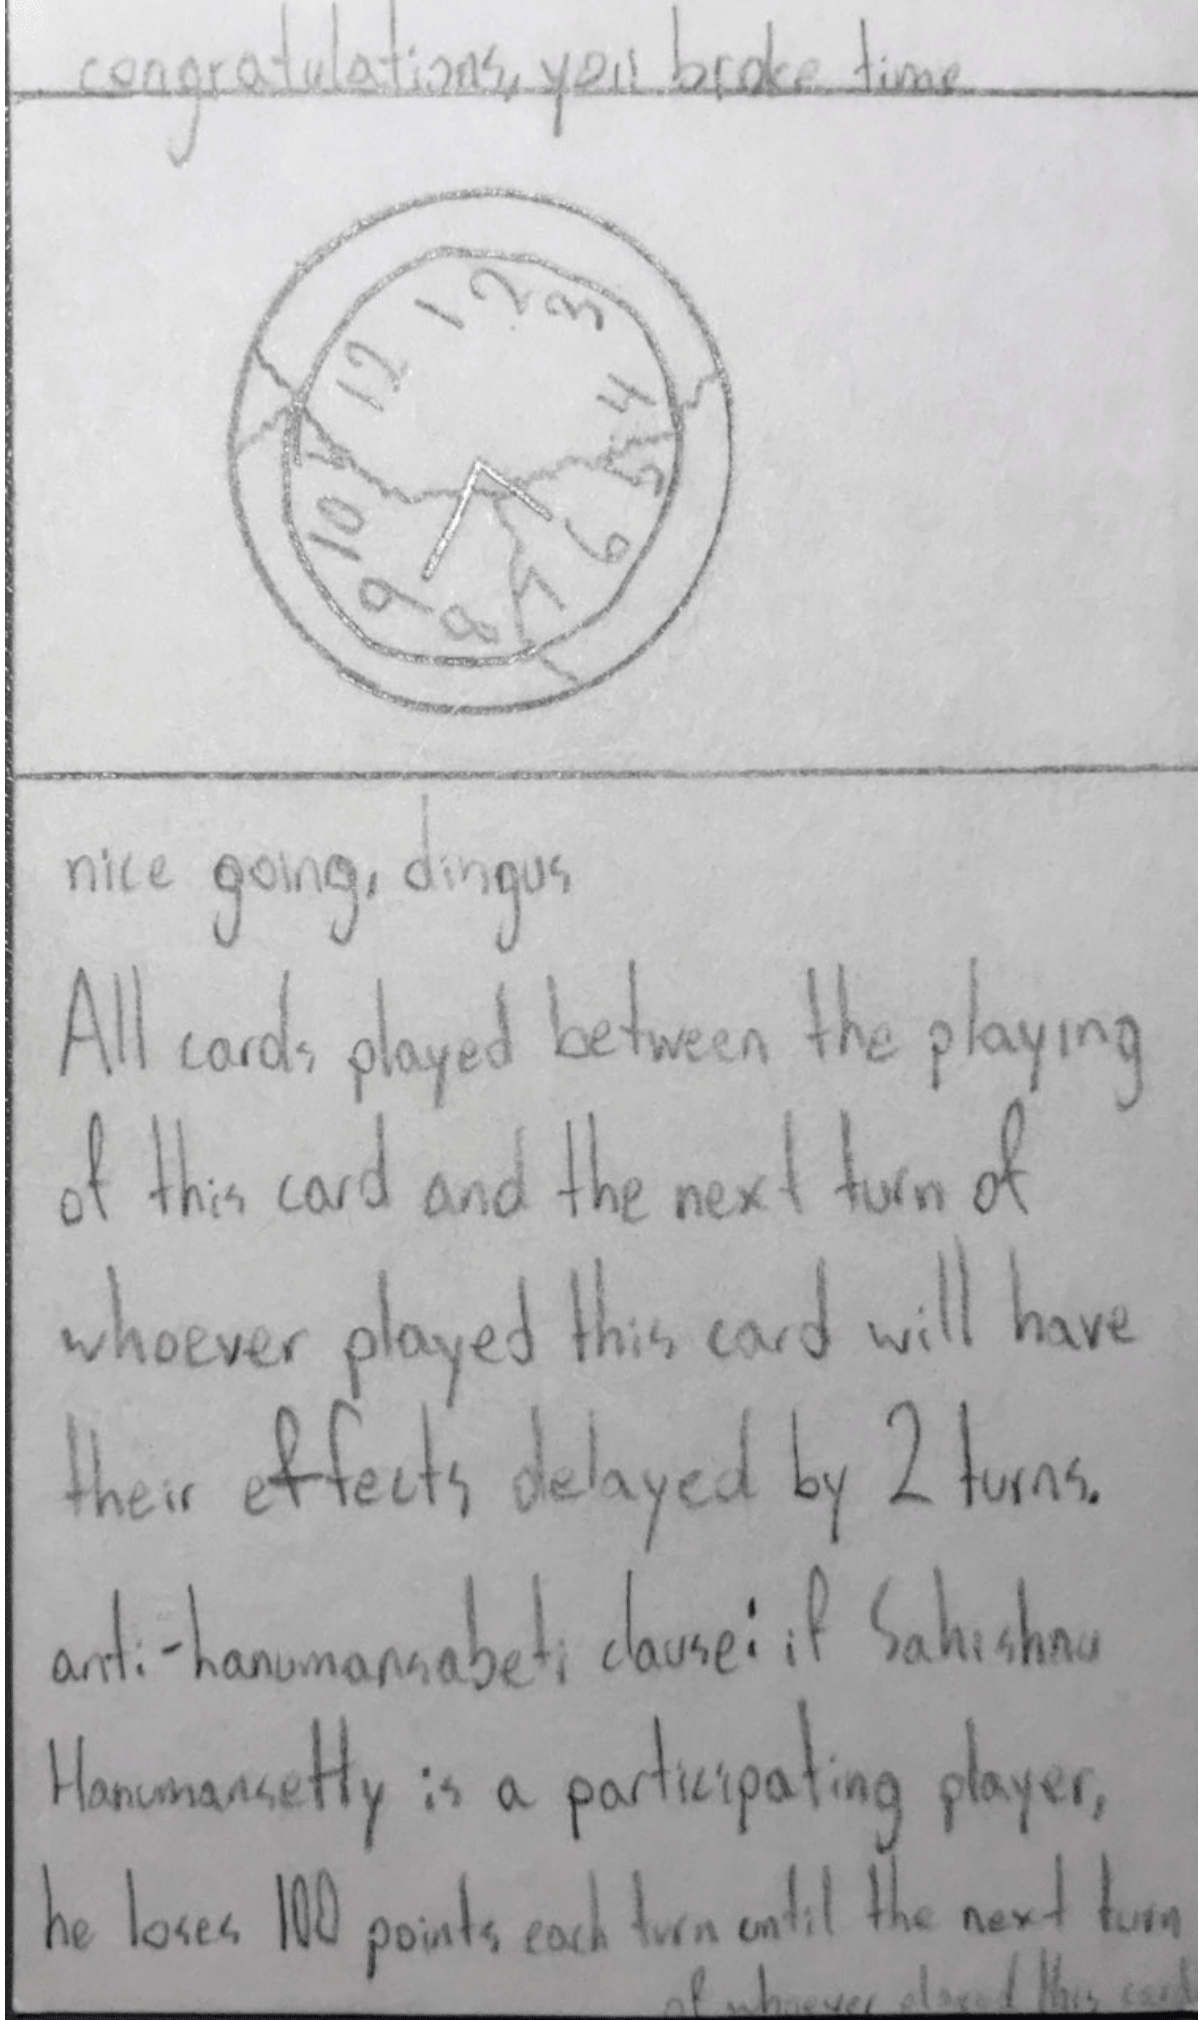 congratulations, you broke time
12 1 2 3 4 5 6 7 8 9 10 11
nice going, dingus
All cards played between the playing
of this card and the next turn of
whoever played this card will have
their effects delayed by 2 turns.
anti-hanumansabeti clause: if Sahishnu
Hanumansetty is a participating player,
he loses 100 points each turn until the next turn
of whoever played this card